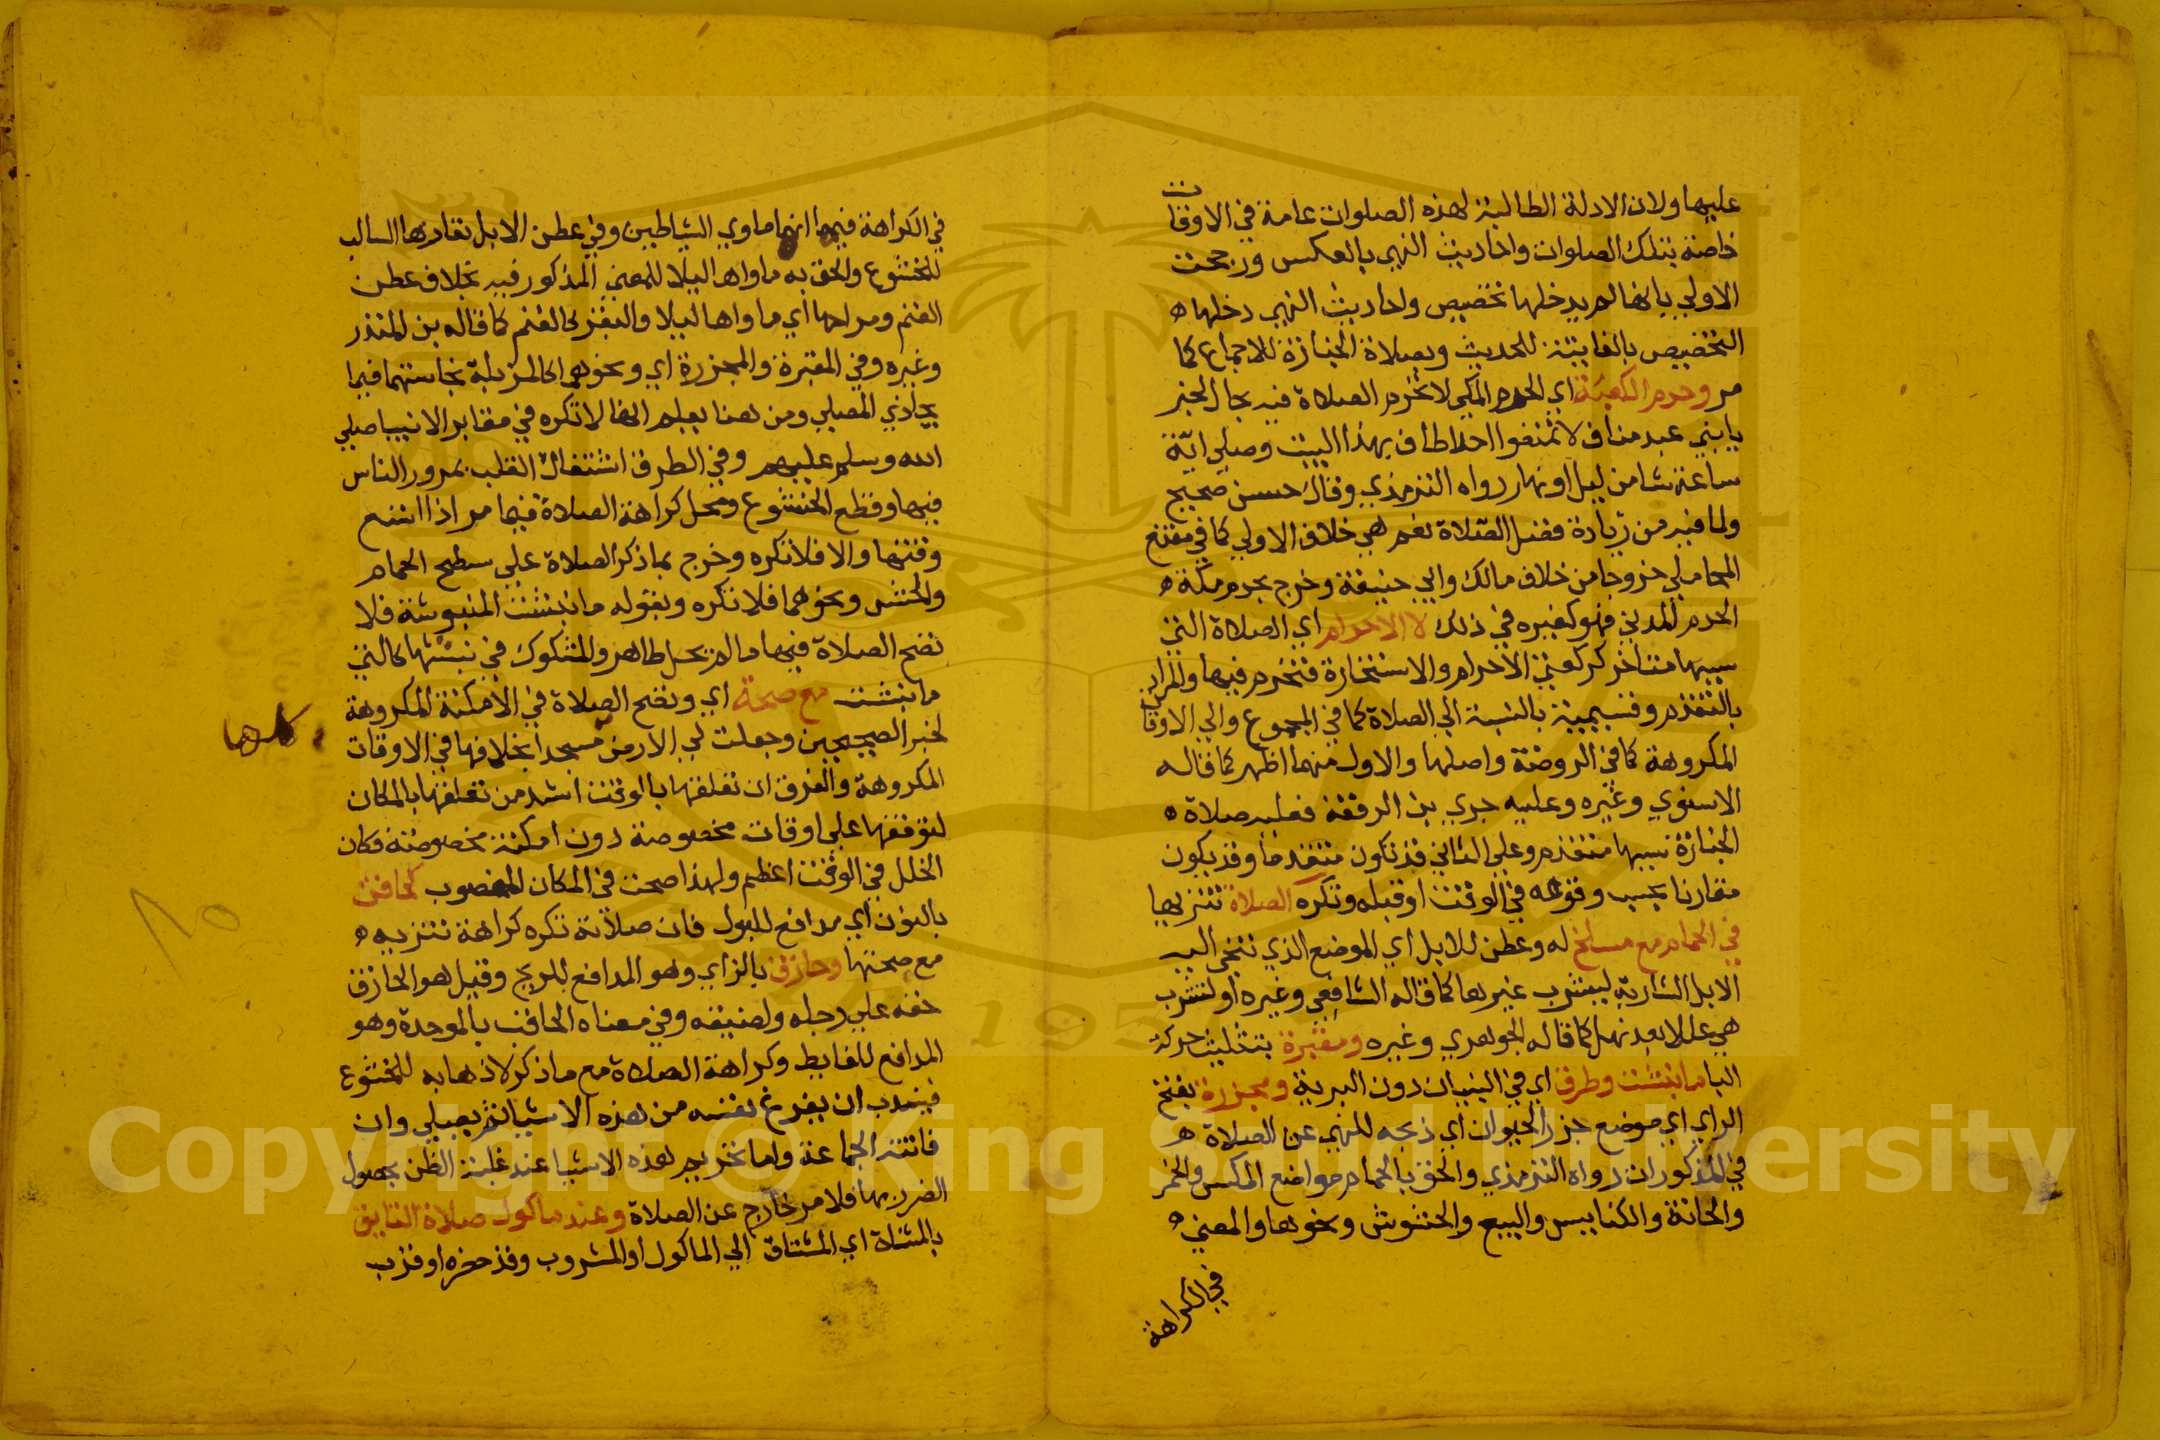 عليها ولان الادلة الطالبة لهذه الصلوات عامة في الاوقات
خاصة بتلك الصلوات واحاديث النهي بالعكس ورجحت
الاولي بانها لم يدخلها تخصيص واحاديث النهي دخلها ه
التخصيص بالفايتة للحديث وبصلاة الجنازة للاجماع كما
مر وحرم الكعبة اي الحرم المكي لا تحرم الصلاة فيه بحال لخبر
يا بني عبد مناف لا تمنعوا احدا طاف بهذا البيت وصلي اية
ساعة شا من ليل او نهار رواه الترمذي وقال حسن صحيح
ولما فيه من زيادة فضل الصلاة نعم هي خلاف الاولي كما في مقنع
المحاملي خروجا من خلاف مالك وابي حنيفة وخرج بحرم مكة ه
الحرم المدني فهو كغيره في ذلك لا الاحرام اي الصلاة التي
سببها متاخر كركعتي الاحرام والاستخارة فتحرم فيها والمراد
بالتقدم وقسيميه بالنسبة الي الصلاة كما في المجموع والي الاوقات
المكروهة كما في الروضة واصلها والاول منهما اظهر كما قاله
الاسنوي وغيره وعليه جري بن الرفعة فعليه صلاة ه
الجنازة سببها متقدم وعلي الثاني قد تكون متقدما وقد يكون
مقارنا بحسب وقوعه في الوقت او قبله وتكره الصلاة تنزيها
في الحمام مع مسلخ له وعطن للابل اي الموضع الذي تنحي اليه
الابل الشاربة ليشرب غيرها كما قاله الشافعي وغيره او لتشرب
هي عللا بعد نهل كما قاله الجوهري وغيره ومقبرة بتثليث حركة
البا ما نبشت وطرق اي في البنيان دون البرية ومجزرة بفتح
الزاي اي موضع جزر الحيوان اي ذبحه للنهي عن الصلاة ه
في المذكورات رواه الترمذي والحق بالحمام مواضع المكس والخمر
والحانة والكنايس والبيع والحشوش ونحوها والمعني ه
في الكراهة
في الكراهة فيها انها ماوي الشياطين وفي عطن الابل نفارها السالب
للخشوع والحق به ماواها ليلا للمعني المذكور فيه بخلاف عطن
الغنم ومراحها اي ماواها ليلا والبقر كالغنم كما قاله بن المنذر
وغيره وفي المقبرة والمجزرة اي ونحوهما كالمزبلة نجاستهما فيما
يحاذي المصلي ومن هنا يعلم انها لا تكره في مقابر الانبيا صلي
الله وسلم عليهم وفي الطرق اشتغال القلب بمرور الناس
فيها وقطع الخشوع ومحل كراهة الصلاة فيما مر اذا اتسع
وقتها والا فلا تكره وخرج بما ذكر الصلاة علي سطح الحمام
والحش ونحوهما فلا تكره وبقوله ما نبشت المنبوشة فلا
تصح الصلاة فيها ما لم يحل طاهر والمشكوك في نبشها كالتي
ما نبشت مع صحة اي وتصح الصلاة في الامكنة المكروهة
لخبر الصحيحين وجعلت لي الارض مسجدا بخلافها في الاوقات
المكروهة والفرق ان تعلقها بالوقت اشد من تعلقها بالمكان
لتوقفها علي اوقات مخصوصة دون امكنة مخصوصة فكان
الخلل في الوقت اعظم ولهذا صحت في المكان المغصوب كحاقن
بالنون اي مدافع للبول فان صلاته تكره كراهة تنزيه ه
مع صحتها وحازق بالزاي وهو المدافع للريح وقيل هو الحازق
خفه علي رجله ولضيقه وفي معناه الحاقب بالموحدة وهو
المدافع للغايط وكراهة الصلاة مع ما ذكر لاذهابه للخشوع
فيندب ان يفرغ نفسه من هذه الاشيا ثم يصلي وان
فاتته الجماعة واما تحريم هذه الاشيا عند غلبة الظن بحصول
الضرر بها فلامر خارج عن الصلاة وعند ماكول صلاة التايق
بالمثناة اي المشتاق الي الماكول او المشروب وقد حضر او قرب